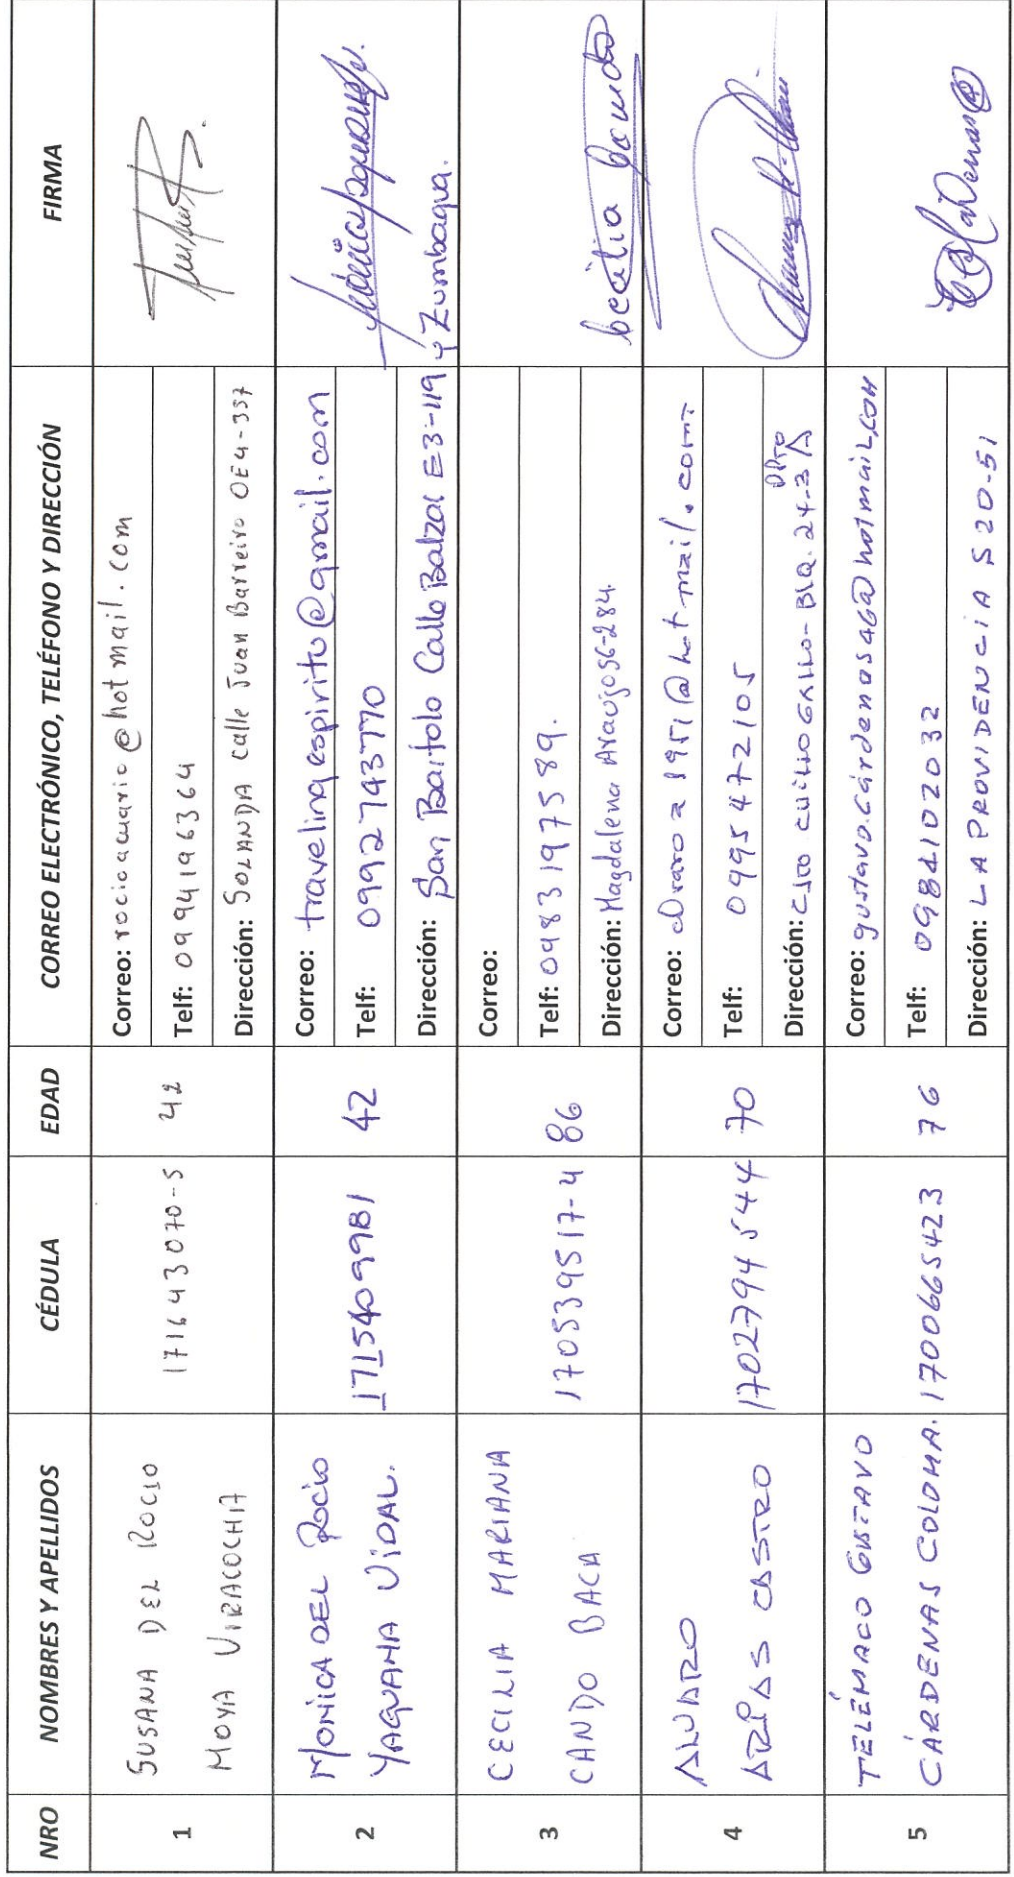 NRO NOMBRES Y APELLIDOS CÉDULA EDAD CORREO ELECTRÓNICO, TELÉFONO Y DIRECCIÓN FIRMA
1
SUSANA DEL ROCIO
MOYA VIRACOCHA
171643070-5
42
Correo: rocioacuario@hotmail.com
Telf: 0994196364
Dirección: SOLANDA calle Juan Barreiro OE4-357
2
MONICA DEL ROCIO
YAGUANA VIDAL.
1715409981
42
Correo: travelingespiritu@gmail.com
Telf: 0992743770
Dirección: San Bartolo Calle Balzar E3-119 y Zumbagua.
3
CECILIA MARIANA
CANDO BACA
170539517-4
86
Correo:
Telf: 0983197589.
Dirección: Magdalena Araujo S6-284.
Cecilia Cando
4
ALVARO
ARPAS CASTRO
1702794544
70
Correo: @hotmail.com
Telf: 0995472105
Dirección: BLQ. 24-3A DPTO
5
TELÉMACO GUSTAVO
CÁRDENAS COLOMA.
1700665423
76
Correo: gustavo.cárdenas46@hotmail.com
Telf: 0984102032
Dirección: LA PROVIDENCIA S20-51